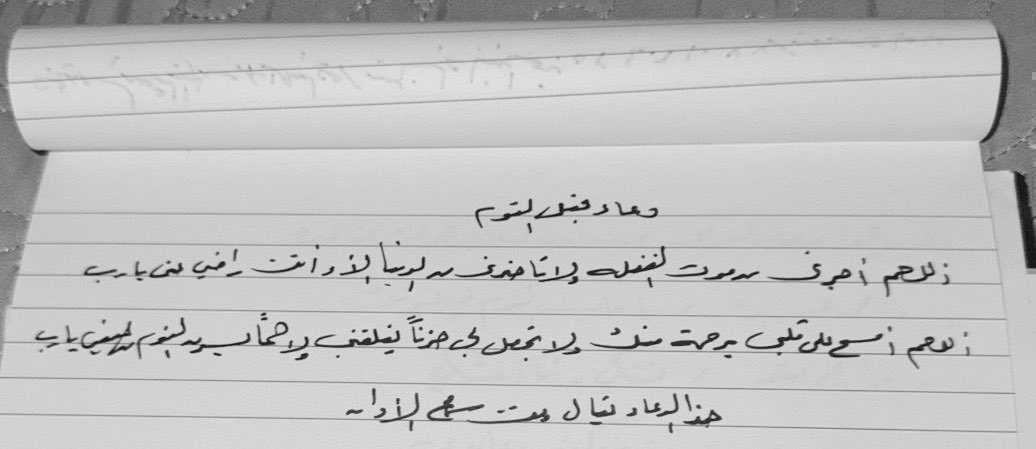 دعاء قبل النوم
اللهم أجرني من موت الغفله ولا تاخذني من الدنيا إلا وأنت راضي عني يارب
اللهم أمسح على قلبي برحمة منك ولا تجعل لي حزناً يغلقني ولا هماً يسرق النوم من عيني يارب
هذا الدعاء يقال وقت سماع الأذان